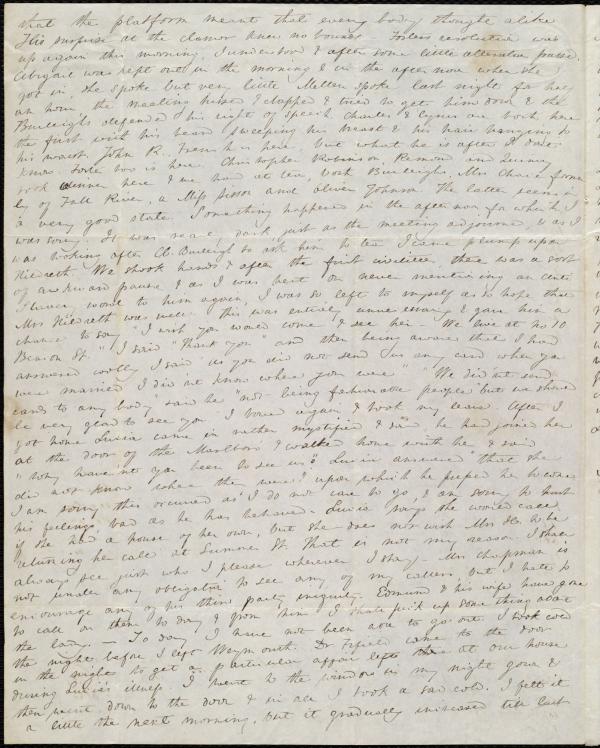 what the platform meant that every body thought alike
His surprise at the clamor knew no bounds. Foster's resolution was
up again this morning, I understood & after some little alteration passed.
Abigail was kept out in the morning & in the afternoon when she
got in she spoke but very little. Mellen spoke last night for half
an hour the meeting hissed & clapped & tried to get him down & the
Burleighs defended his right of speech Charles & Cyrus are both here
the first with his beard sweeping his breast & his hair hanging to
his waist. John R. French is here. but what he is after I don't
know. Foster too is here. Christopher Robinson, Remond and
took dinner here & we had at tea, both Burleighs, Mrs Chace former
ly of Fall River, a Miss and Oliver Johnson. The latter seems in
a very good state. Something happened in the afternoon for which I
was sorry. It was near dark just as the meeting adjourned, & as I
was looking after C. Burleigh to ask him to tea I came plump upon
Hildreth. We shook hands & after the first civilities, there was a sort
of awkward pause & as I was bent on never mentioning an anti
slavery word to him again, I was so left to myself as to hope that
Mrs Hildreth was well. this was entirely unnecessary & gave him a
chance to say "I wish you would come & see her. We live at no 10
Beacon St." I said "thank you" and then being aware that I had
answered coolly I said "as you did not send us any card when you
were married I did not know where you were" "We did not send
cards to any body" said he "not being fashionable people but we should
be very glad to see you" I bowed again & took my leave. After I
got home Lucia came in rather mystified & said he had joined her
at the door of the Marlboro & walked home with her & said
"why haven't you been to see us". Lucia answered "that she
did not know where they were" upon which he he was
I am sorry this occurred as I do not care to go, & am sorry to hurt
his feelings bad as he has behaved. Lucia says she would call
if she had a house of her own, but she does not wish Mrs H. to be
returning her call at Summer St. That is not my reason. I shall
always see just who I please wherever I stay. Mrs Chapman is
not under any obligation to see any of my callers, but I hate to
encourage any of his third party iniquity. Edmund & his wife have gone
to call on them to day & from him I shall pick up some thing about
the lady. — To day, I have not been able to go out. I took cold
the night before I left Weymouth. Dr Fifield came to the door
in the night to get a particular affair left there at our house
during Lucia's illness. I went to the window in my night gown &
then went down to the door & in all I took a sad cold. I felt it
a little the next morning, but it gradually increased till last